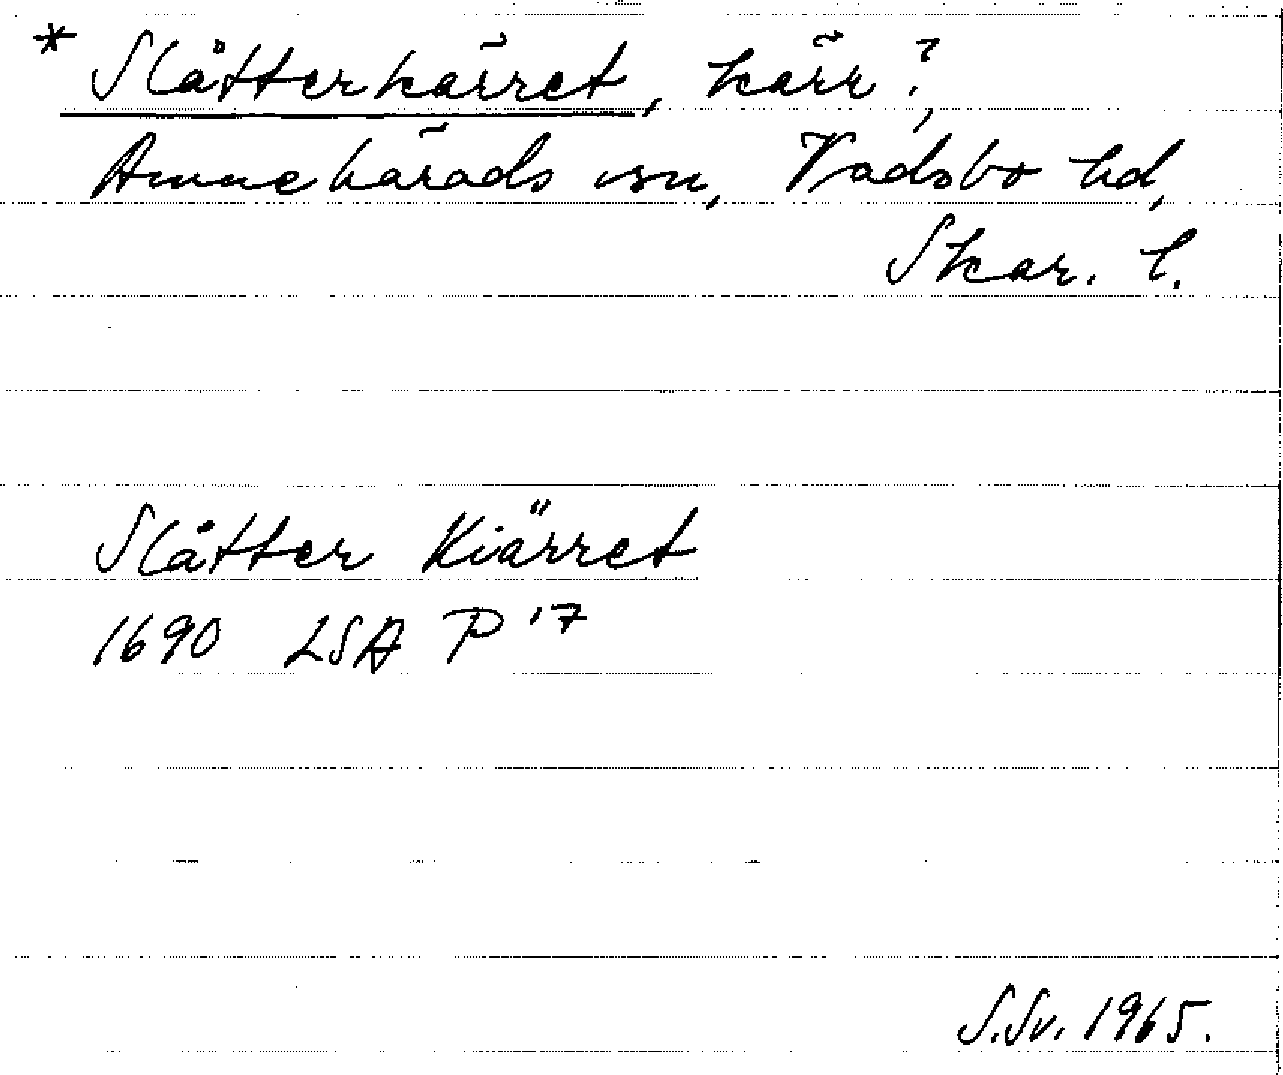 * Slåtterkärret, kärr?,
Amnehärads sn, Vadsbo hd,
Skar. l.
Slåtter Kiärret
1690 LSA P 17
S.Sv. 1965.